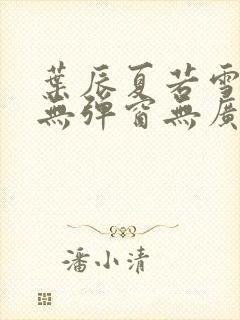 葉辰夏若雪
無彈窗無廣
潘小清